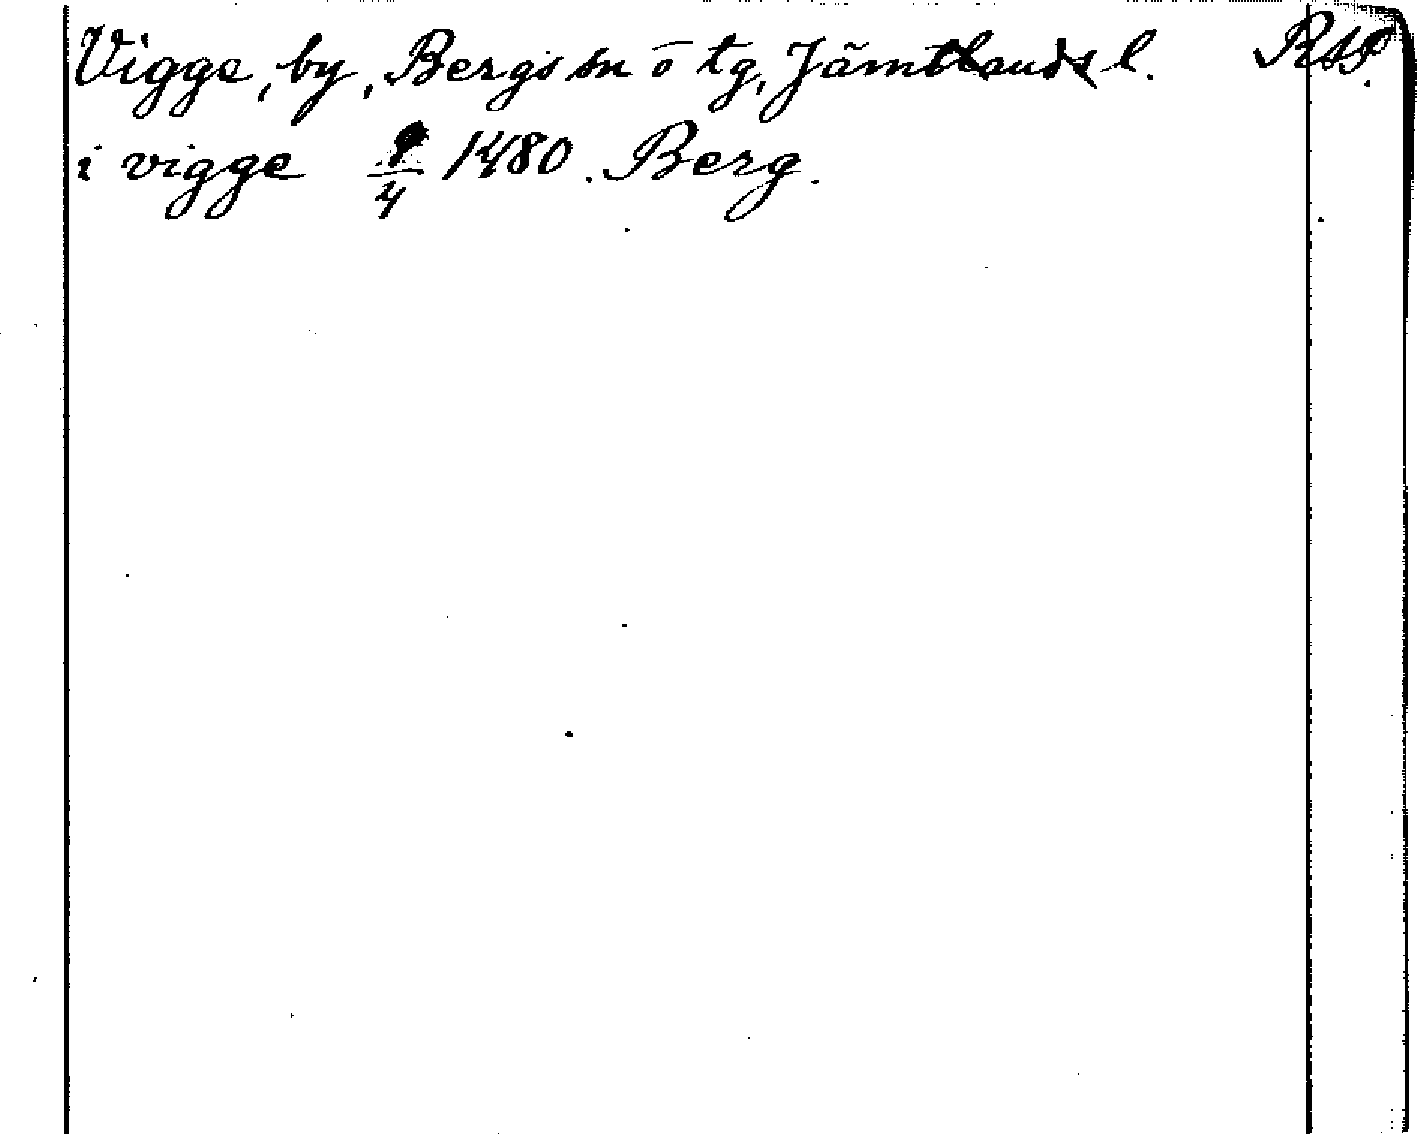 Vigge, by, Bergs sn o tg, Jämtlands l. RAP.
i vigge 9/4 1480. Berg.